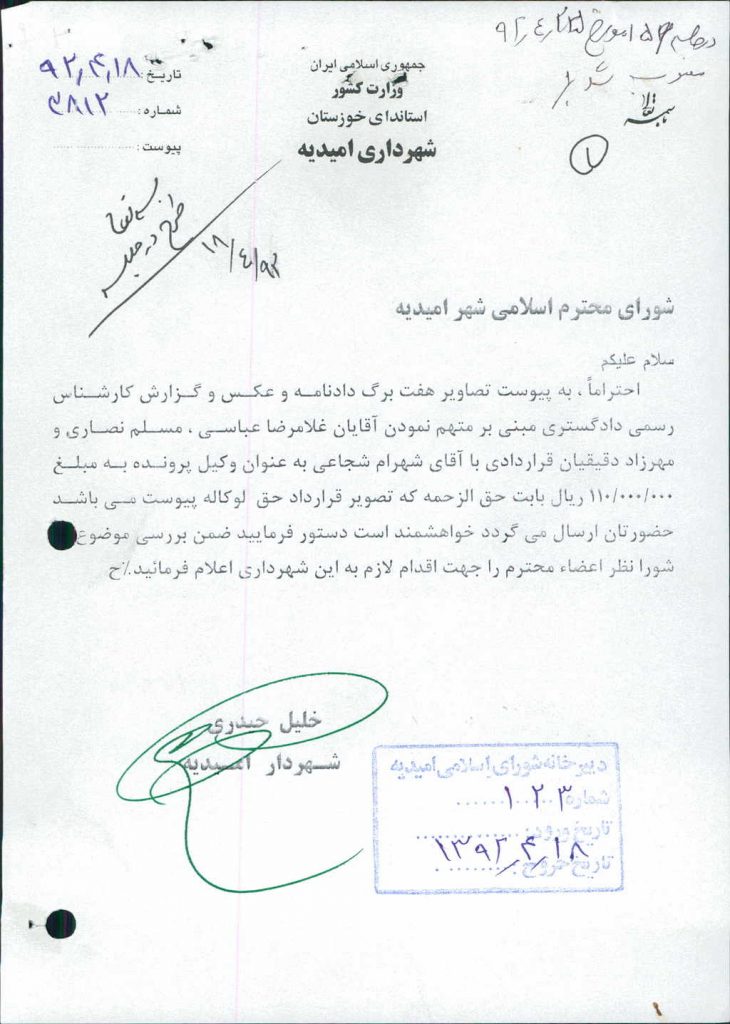 جمهوری اسلامی ایران
وزارت کشور
استاندای خوزستان
شهرداری امیدیه
تاریخ: ۹۲,۴,۱۸
شماره: ۳۸۱۲
پیوست:
در جلسه ۱۵۳ مورخ ۹۲,۴,۲۵
شد
۱
طرح در جلسه
۹۲/۴/۱۸
شورای محترم اسلامی شهر امیدیه
سلام علیکم
احتراماً ، به پیوست تصاویر هفت برگ دادنامه و عکس و گزارش کارشناس
رسمی دادگستری مبنی بر متهم نمودن آقایان غلامرضا عباسی ، مسلم نصاری و
مهرزاد دقیقیان قراردادی با آقای شهرام شجاعی به عنوان وکیل پرونده به مبلغ
۱۱۰/۰۰۰/۰۰۰ ریال بابت حق الزحمه که تصویر قرارداد حق لوکاله پیوست می باشد
حضورتان ارسال می گردد خواهشمند است دستور فرمایید ضمن بررسی موضوع
شورا نظر اعضاء محترم را جهت اقدام لازم به این شهرداری اعلام فرمائید.٪ح
خلیل حیدری
شهردار امیدیه
دبیرخانه شورای اسلامی امیدیه
شماره ۱۰۲۳
تاریخ ورود:
تاریخ خروج: ۱۳۹۲,۴,۱۸